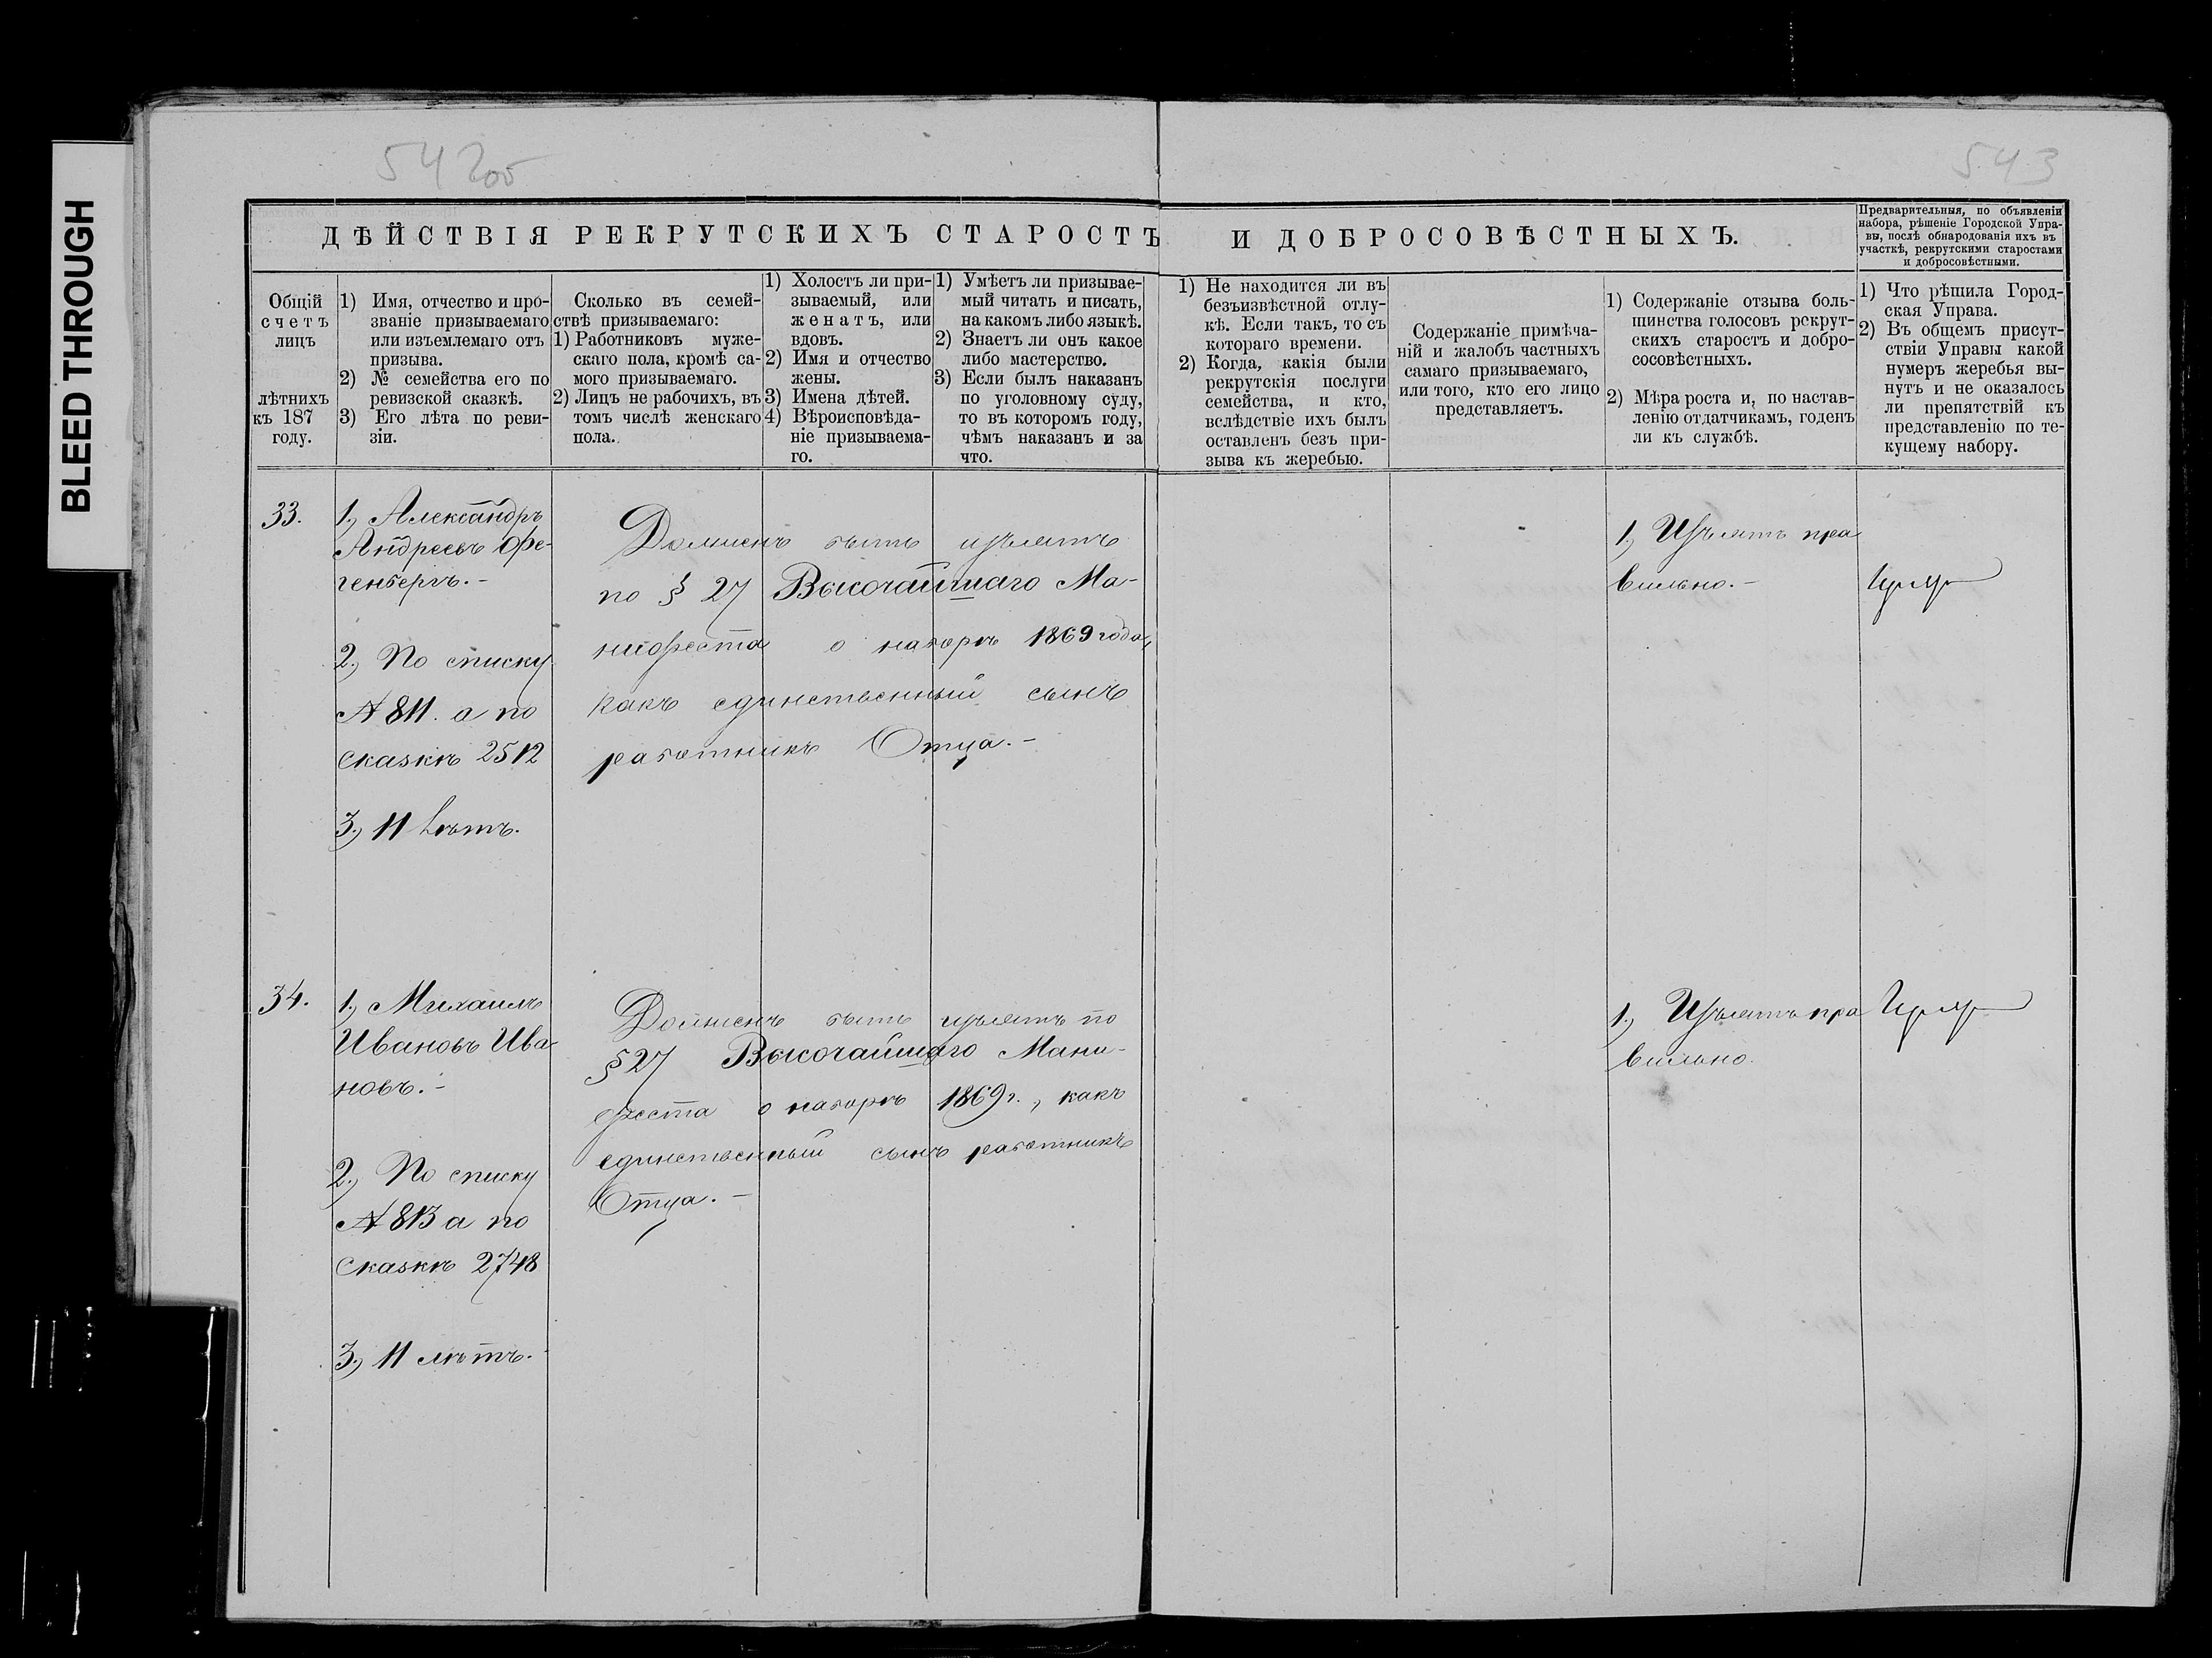 BLEED THROUGH
542об
543
ДѢЙСТВІЯ РЕКРУТСКИХЪ СТАРОСТЪ И ДОБРОСОВѢСТНЫХЪ.
Предварительныя, по объявленіи
набора, рѣшеніе Городской Упра-
вы, послѣ обнародованія ихъ въ
участкѣ, рекрутскими старостами
и добросовѣстными.
Общій
счетъ
лицъ
лѣтнихъ
къ 187
году.
1) Имя, отчество и про-
званіе призываемаго
или изъемлемаго отъ
призыва.
2) № семейства его по
ревизской сказкѣ.
3) Его лѣта по реви-
зіи.
Сколько въ семей-
ствѣ призываемаго:
1) Работниковъ муже-
скаго пола, кромѣ са-
мого призываемаго.
2) Лицъ не рабочихъ, въ
томъ числѣ женскаго
пола.
1) Холостъ ли при-
зываемый, или
женатъ, или
вдовъ.
2) Имя и отчество
жены.
3) Имена дѣтей.
4) Вѣроисповѣда-
ніе призываема-
го.
1) Умѣетъ ли призывае-
мый читать и писать,
на какомъ либо языкѣ.
2) Знаетъ ли онъ какое
либо мастерство.
3) Если былъ наказанъ
по уголовному суду,
то въ которомъ году,
чѣмъ наказанъ и за
что.
1) Не находится ли въ
безъизвѣстной отлу-
кѣ. Если такъ, то съ
котораго времени.
2) Когда, какія были
рекрутскія послуги
семейства, и кто,
вслѣдствіе ихъ былъ
оставленъ безъ при-
зыва къ жеребью.
Содержаніе примѣча-
ній и жалобъ частныхъ
самаго призываемаго,
или того, кто его лицо
представляетъ.
1) Содержаніе отзыва боль-
шинства голосовъ рекрут-
скихъ старостъ и добро-
совѣстныхъ.
2) Мѣра роста и, по настав-
ленію отдатчикамъ, годенъ
ли къ службѣ.
1) Что рѣшила Город-
ская Управа.
2) Въ общемъ присут-
ствіи Управы какой
нумеръ жеребья вы-
нутъ и не оказалось
ли препятствій къ
представленію по те-
кущему набору.
33.
1., Александръ
Андреевъ Фе-
генбергъ.-
2., По списку
№ 811. а по
сказкѣ 2512
3., 11 Лѣтъ.
Долженъ быть изъятъ
по § 27 Высочайшаго Ма-
нифеста о наборѣ 1869 года,
какъ единственный сынъ
работникъ Отца.-
1., Изъятъ пра
вильно.-
34.
1., Михаилъ
Ивановъ Ива-
новъ.-
2., По списку
№ 813 а по
Сказкѣ 2748
3., 11 лѣтъ.
Долженъ быть изъятъ по
§ 27 Высочайшаго Мани-
феста о наборѣ 1869 г., какъ
единственный сынъ работникъ
Отца.-
1., Изъятъ пра
вильно.